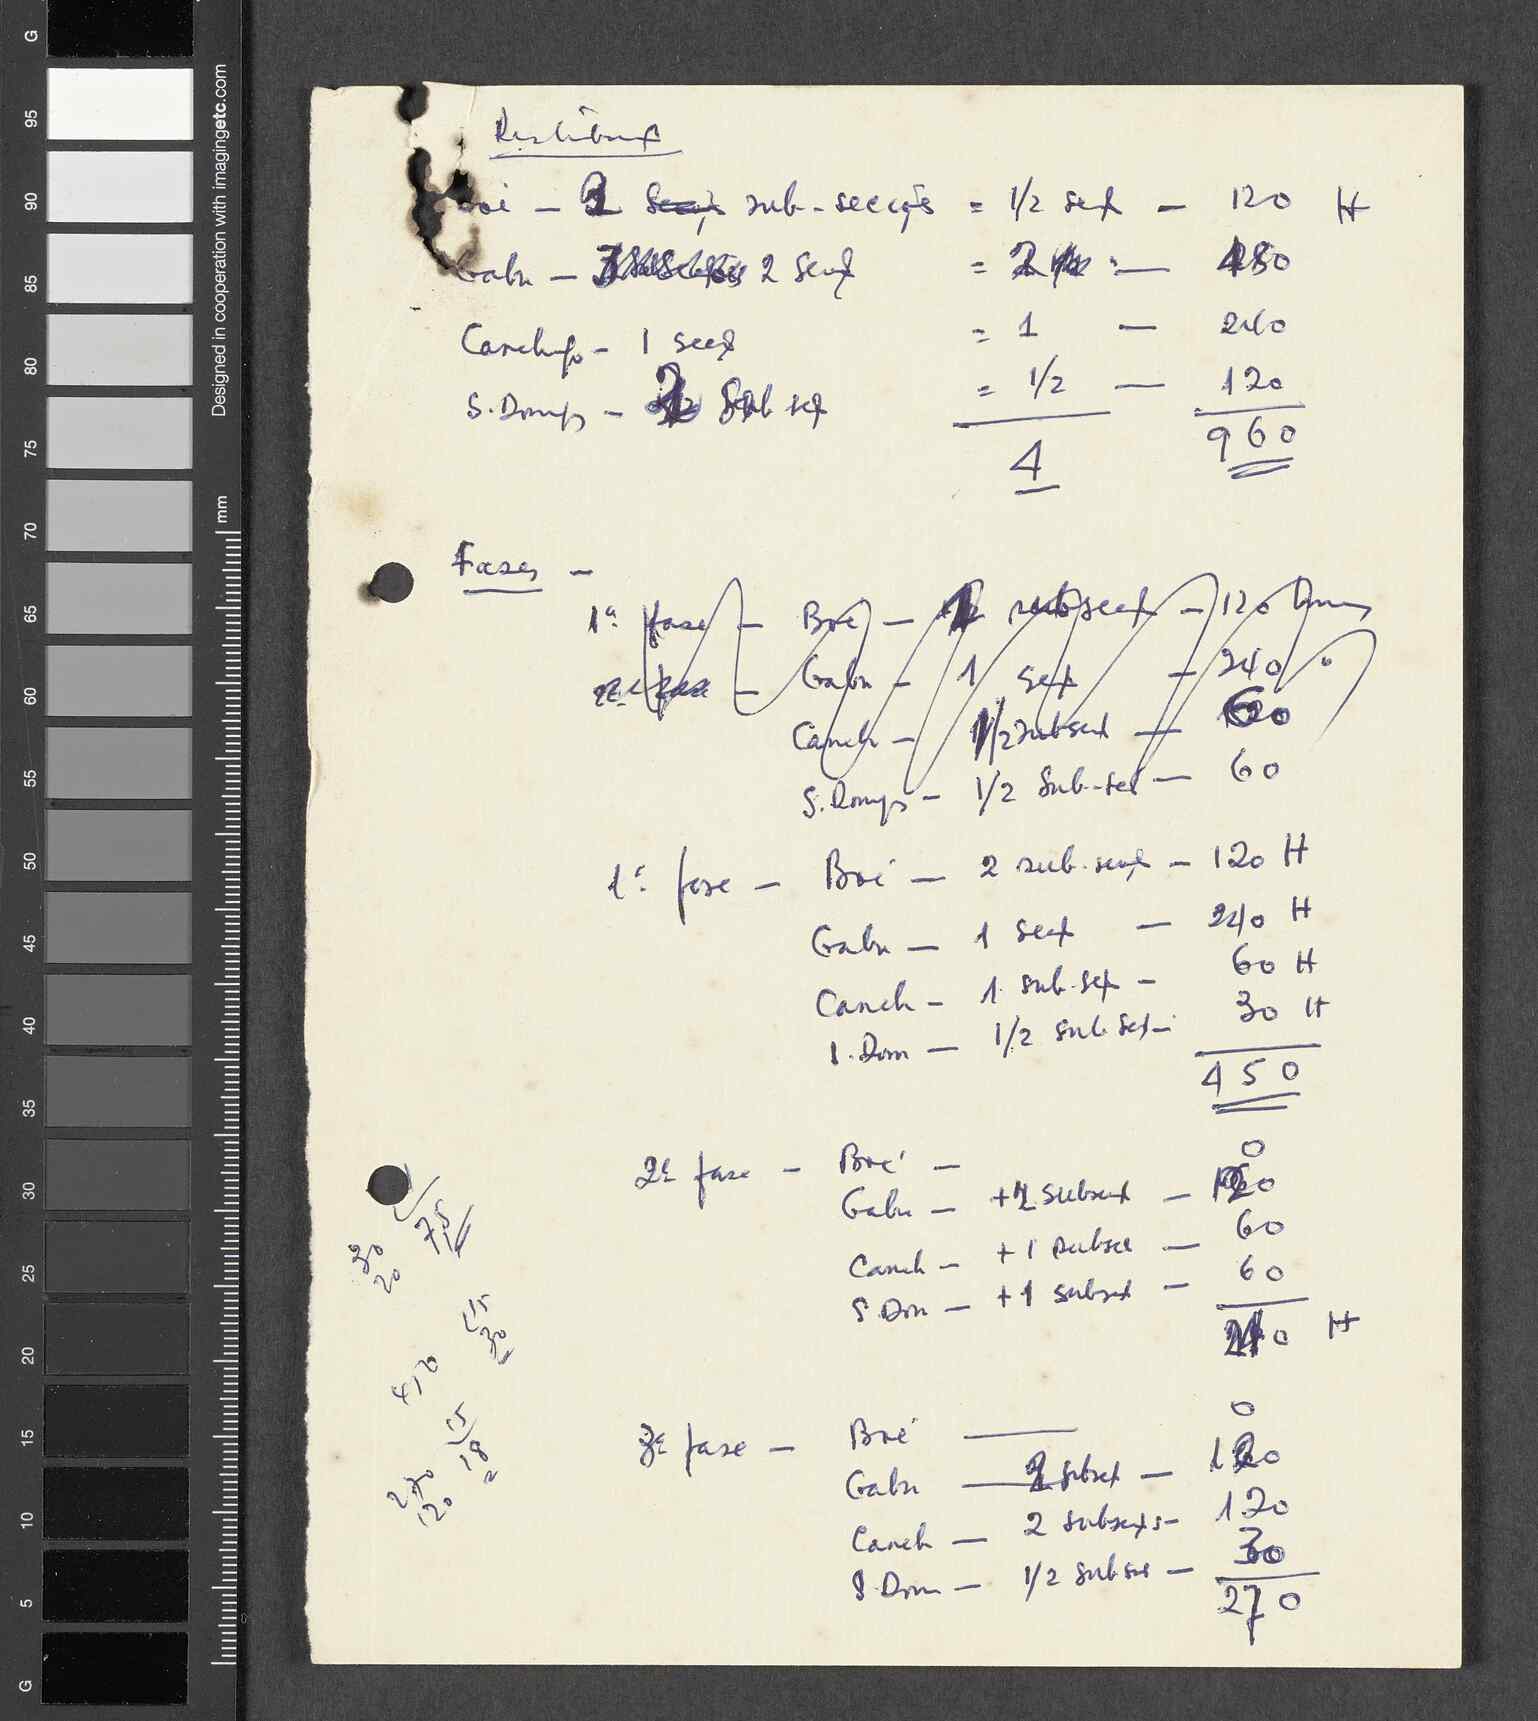 G
95
90
85
80
75
70
65
60
55
50
45
40
35
30
25
20
15
10
5
G
Designed in cooperation with imagingetc.com
mm
Boé – 2 sub-secções = 1/2 secç – 120 H
Gabu – 2 secç = 2 – 480
Canchup – 1 secç = 1 – 240
S. Doming – sub secç = 1/2 – 120
4 – 960
Fases –
1ª fase – Boé – subsecç – 120 homens
2ª fase – Gabu – 1 secç – 240 "
Canch – 1/2 subsecç – 60
S. Domgs – 1/2 sub-sec – 60
1ª fase – Boé – 2 sub-secç – 120 H
Gabu – 1 secç – 240 H
Canch – 1 sub-secç – 60 H
S. Dom – 1/2 sub secç – 30 H
450
2ª fase – Boé – 0
Gabu – +2 subsecç – 120
Canch – +1 subsec – 60
S. Dom – +1 subsecç – 60
240 H
3ª fase – Boé — 0
Gabu — 2 subsecç – 120
Canch – 2 subsecçs – 120
S. Dom – 1/2 subsec – 30
270
75
30
20
15
30
450
15
18
270
120